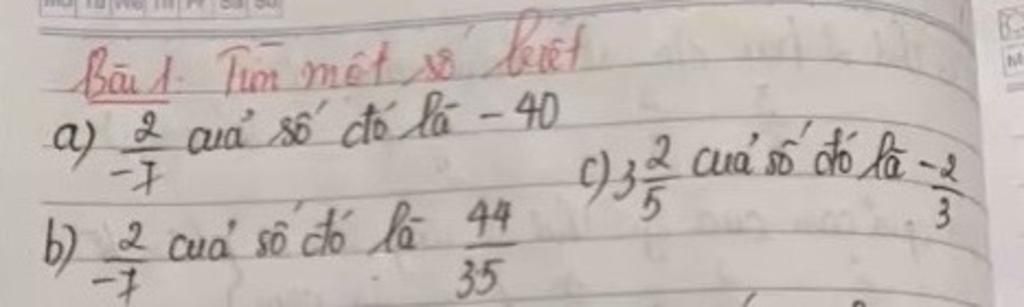 Bài 1. Tìm một số biết
a) 2/-7 của số đó là - 40
b) 2/-7 của số đó là 44/35
c) 3 2/5 của số đó là -2/3